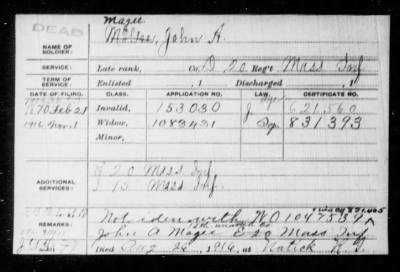 DEAD
Magee
NAME OF SOLDIER: John A.
SERVICE: Late rank, Co. D 20 Reg't Mass Inf
TERM OF SERVICE Enlisted , 1 Discharged , 1
DATE OF FILING. CLASS. APPLICATION NO. LAW. CERTIFICATE NO.
1870 Feb 21 Invalid, 153.030 621.560
1916 Nov. 1 Widow, 1083431 831393
Minor,
ADDITIONAL SERVICES: 20 Mass Inf
I 15 Mass Inf.
REMARKS: Not iden with WO 1047534
12th unattch Co
John A Magee C 20 Mass Inf
Died Aug 26, 1916, at Natick R.I.